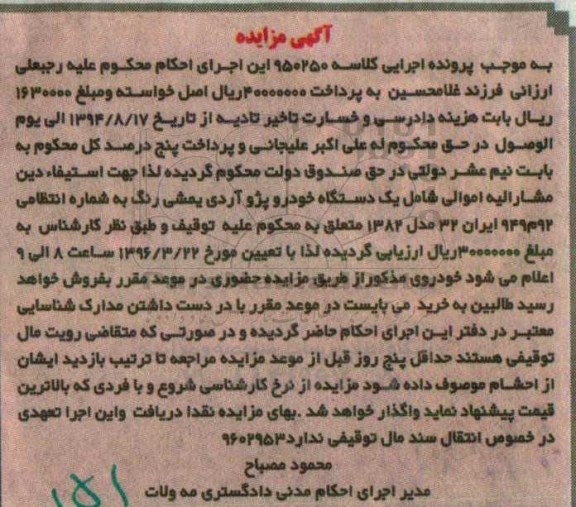 آگهی مزایده
به موجب پرونده اجرایی کلاسه ۹۵۰۲۵۰ این اجرای احکام محکوم علیه رجبعلی
ارزانی فرزند غلامحسین به پرداخت ۴۰۰۰۰۰۰۰ریال اصل خواسته ومبلغ ۱۶۳۰۰۰۰
ریال بابت هزینه دادرسی و خسارت تاخیر تادیه از تاریخ ۱۳۹۴/۸/۱۷ الی یوم
الوصول در حق محکوم له علی اکبر علیجانی و پرداخت پنج درصد کل محکوم به
بابت نیم عشر دولتی در حق صندوق دولت محکوم گردیده لذا جهت استیفاء دین
مشارالیه اموالی شامل یک دستگاه خودرو پژو آردی یمشی رنگ به شماره انتظامی
۹۲م۹۴۹ ایران ۳۲ مدل ۱۳۸۲ متعلق به محکوم علیه توقیف و طبق نظر کارشناس به
مبلغ ۳۰۰۰۰۰۰۰ریال ارزیابی گردیده لذا با تعیین مورخ ۱۳۹۶/۳/۲۲ ساعت ۸ الی ۹
اعلام می شود خودروی مذکوراز طریق مزایده حضوری در موعد مقرر بفروش خواهد
رسید طالبین به خرید می بایست در موعد مقرر با در دست داشتن مدارک شناسایی
معتبر در دفتر این اجرای احکام حاضر گردیده و در صورتی که متقاضی رویت مال
توقیفی هستند حداقل پنج روز قبل از موعد مزایده مراجعه تا ترتیب بازدید ایشان
از احشام موصوف داده شود مزایده از نرخ کارشناسی شروع و با فردی که بالاترین
قیمت پیشنهاد نماید واگذار خواهد شد .بهای مزایده نقدا دریافت واین اجرا تعهدی
در خصوص انتقال سند مال توقیفی ندارد۹۶۰۲۹۵۳
محمود مصباح
مدیر اجرای احکام مدنی دادگستری مه ولات